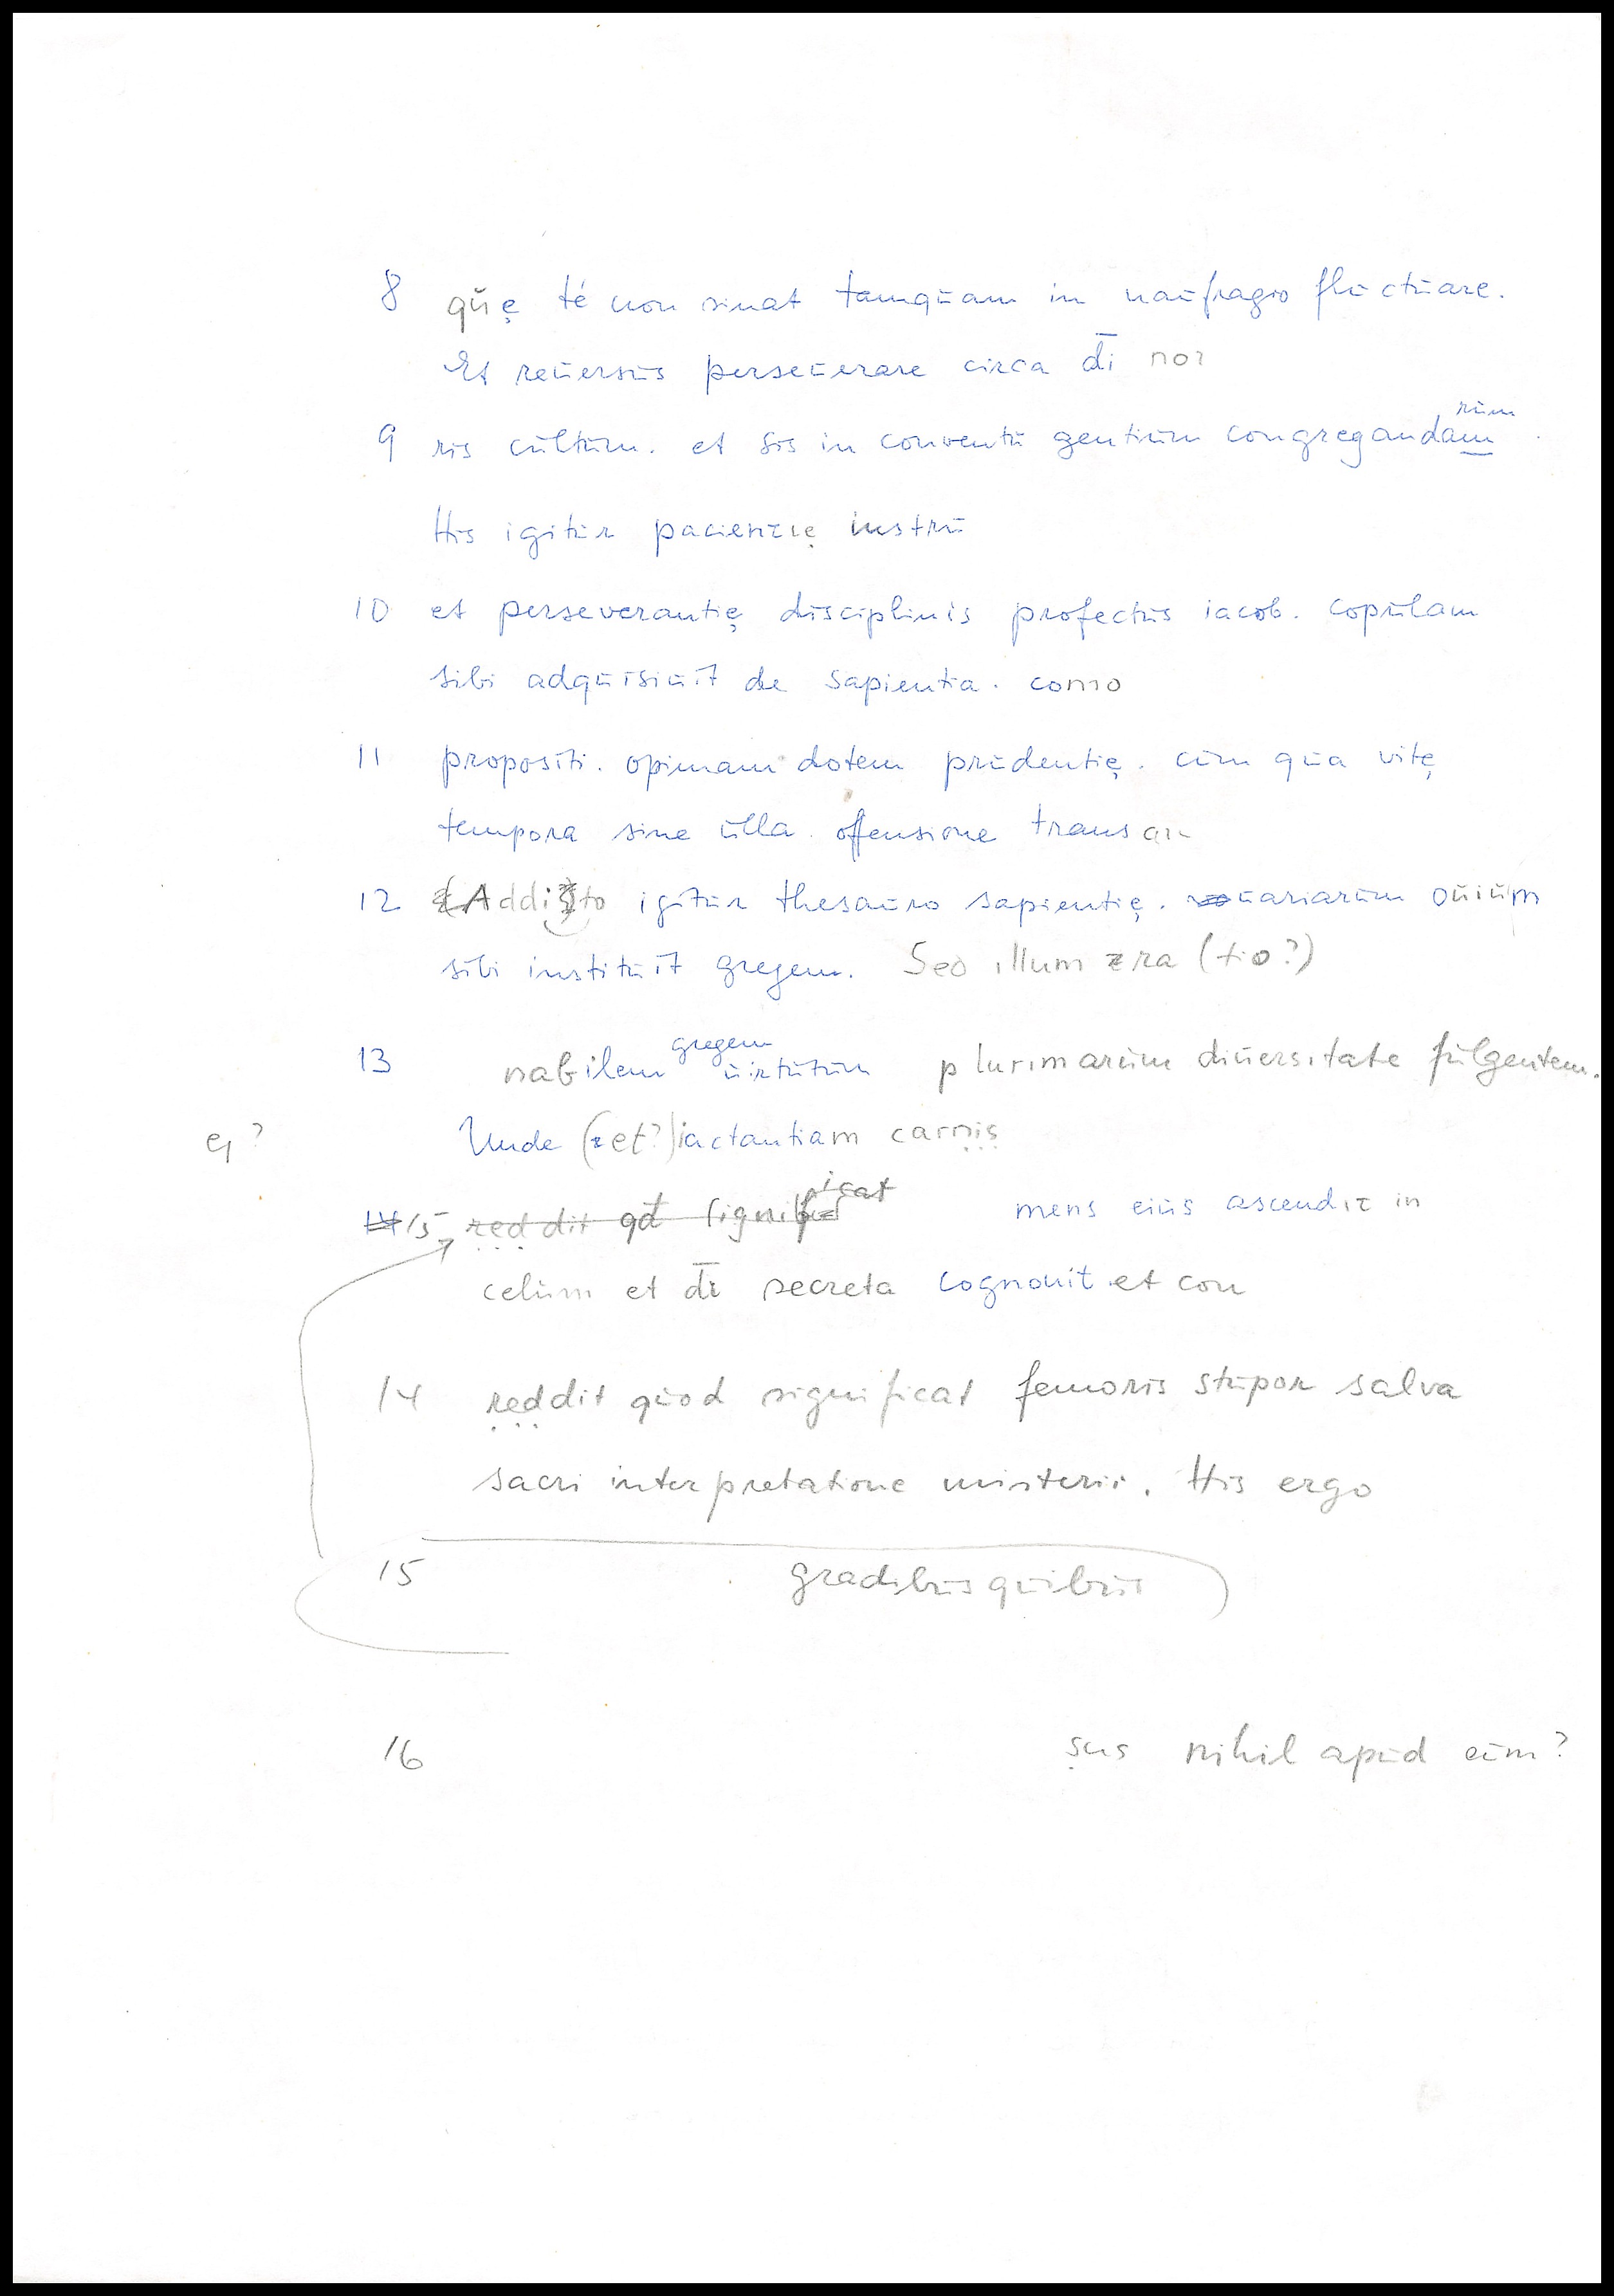 8 quę té non sinat tamquam in naufragio fluctuare.
Et reuersus perseuerare circa d̄i nor
9 ris cultum. et sis in conventu gentium congregandam rum
His igitur pacientię instru
10 et perseverantię disciplinis profectus iacob. copulam
sibi adquisiuit de sapientia. como
11 propositi. opimam dotem prudentię. cum qua vitę
tempora sine ulla. offensione trans an
12 Addi to igitur thesauro sapientię. uariarum ouium
sibi instituit gregem. Seo illum zra (tio?)
13 nabilem gregem uirtutum plurimarum diuersitate fulgentem.
ę ? Unde (et?) iactantiam carnis
14 15 reddit qd̄ significat mens eius ascendit in
celum et d̄i secreta cognouit et con
14 reddit quod significat femoris stupor salva
sacri interpretatione misterii. His ergo
15 gradibus quibus
16 sus nihil apud eum?